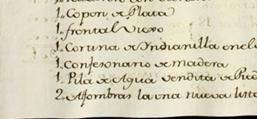 1. Copon de Plata
1. frontal Viejo
1. Cortina de Indianilla en el
1. Confesonario de madera
1. Pila de Agua vendita de
2. Alfombras la una nueva